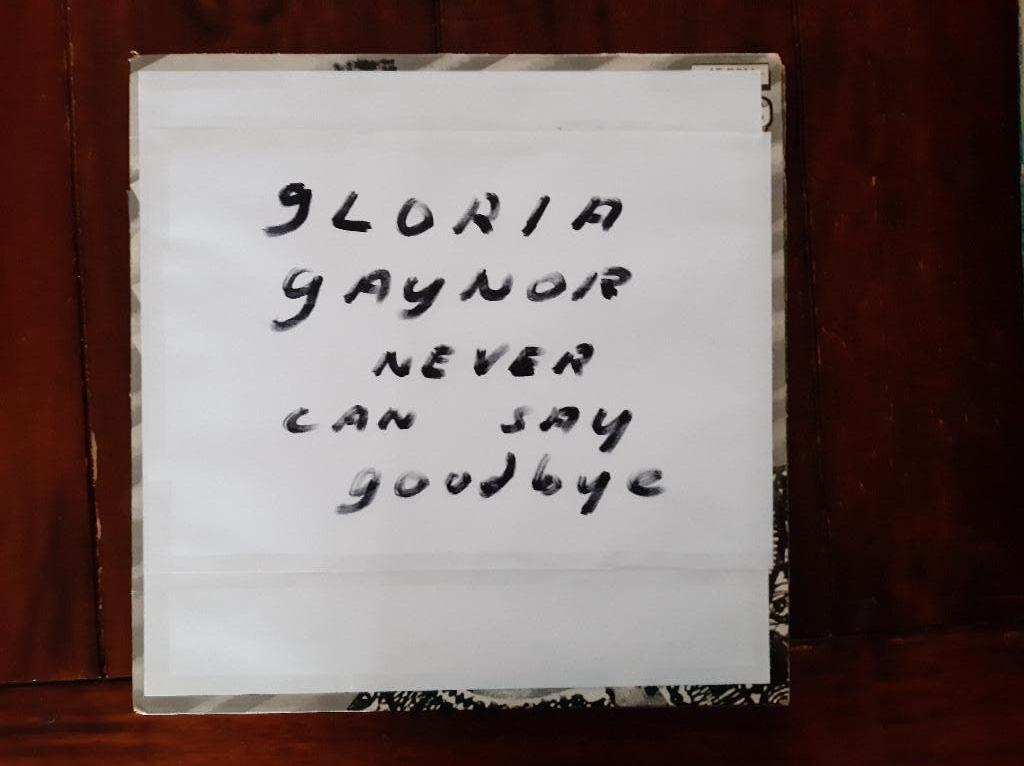 gLORIA
gAYNOR
NEVER
CAN SAY
goodbye